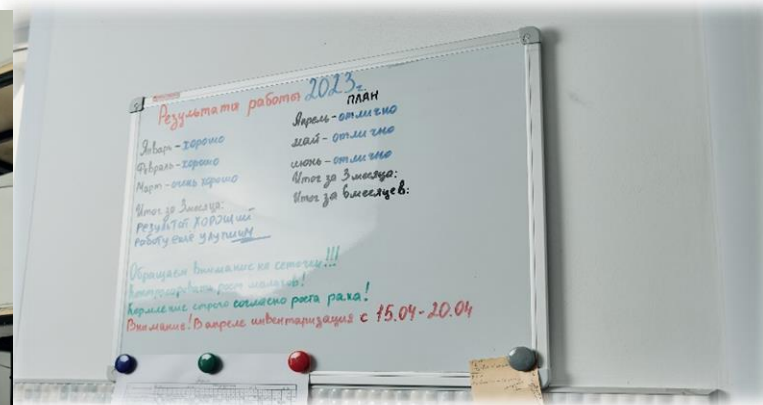 Результаты работы 2023г.
Январь - хорошо
Февраль - хорошо
Март - очень хорошо
Итог за 3 месяца:
РЕЗУЛЬТАТ ХОРОШИЙ
работу еще улучшим
ПЛАН
Апрель - отлично
май - отлично
июнь - отлично
Итог за 3 месяца:
Итог за 6 месяцев:
Обращаем внимание на сеточки!!!
Контролировать рост мальков!
Кормление строго согласно роста рака!
Внимание! В апреле инвентаризация с 15.04-20.04